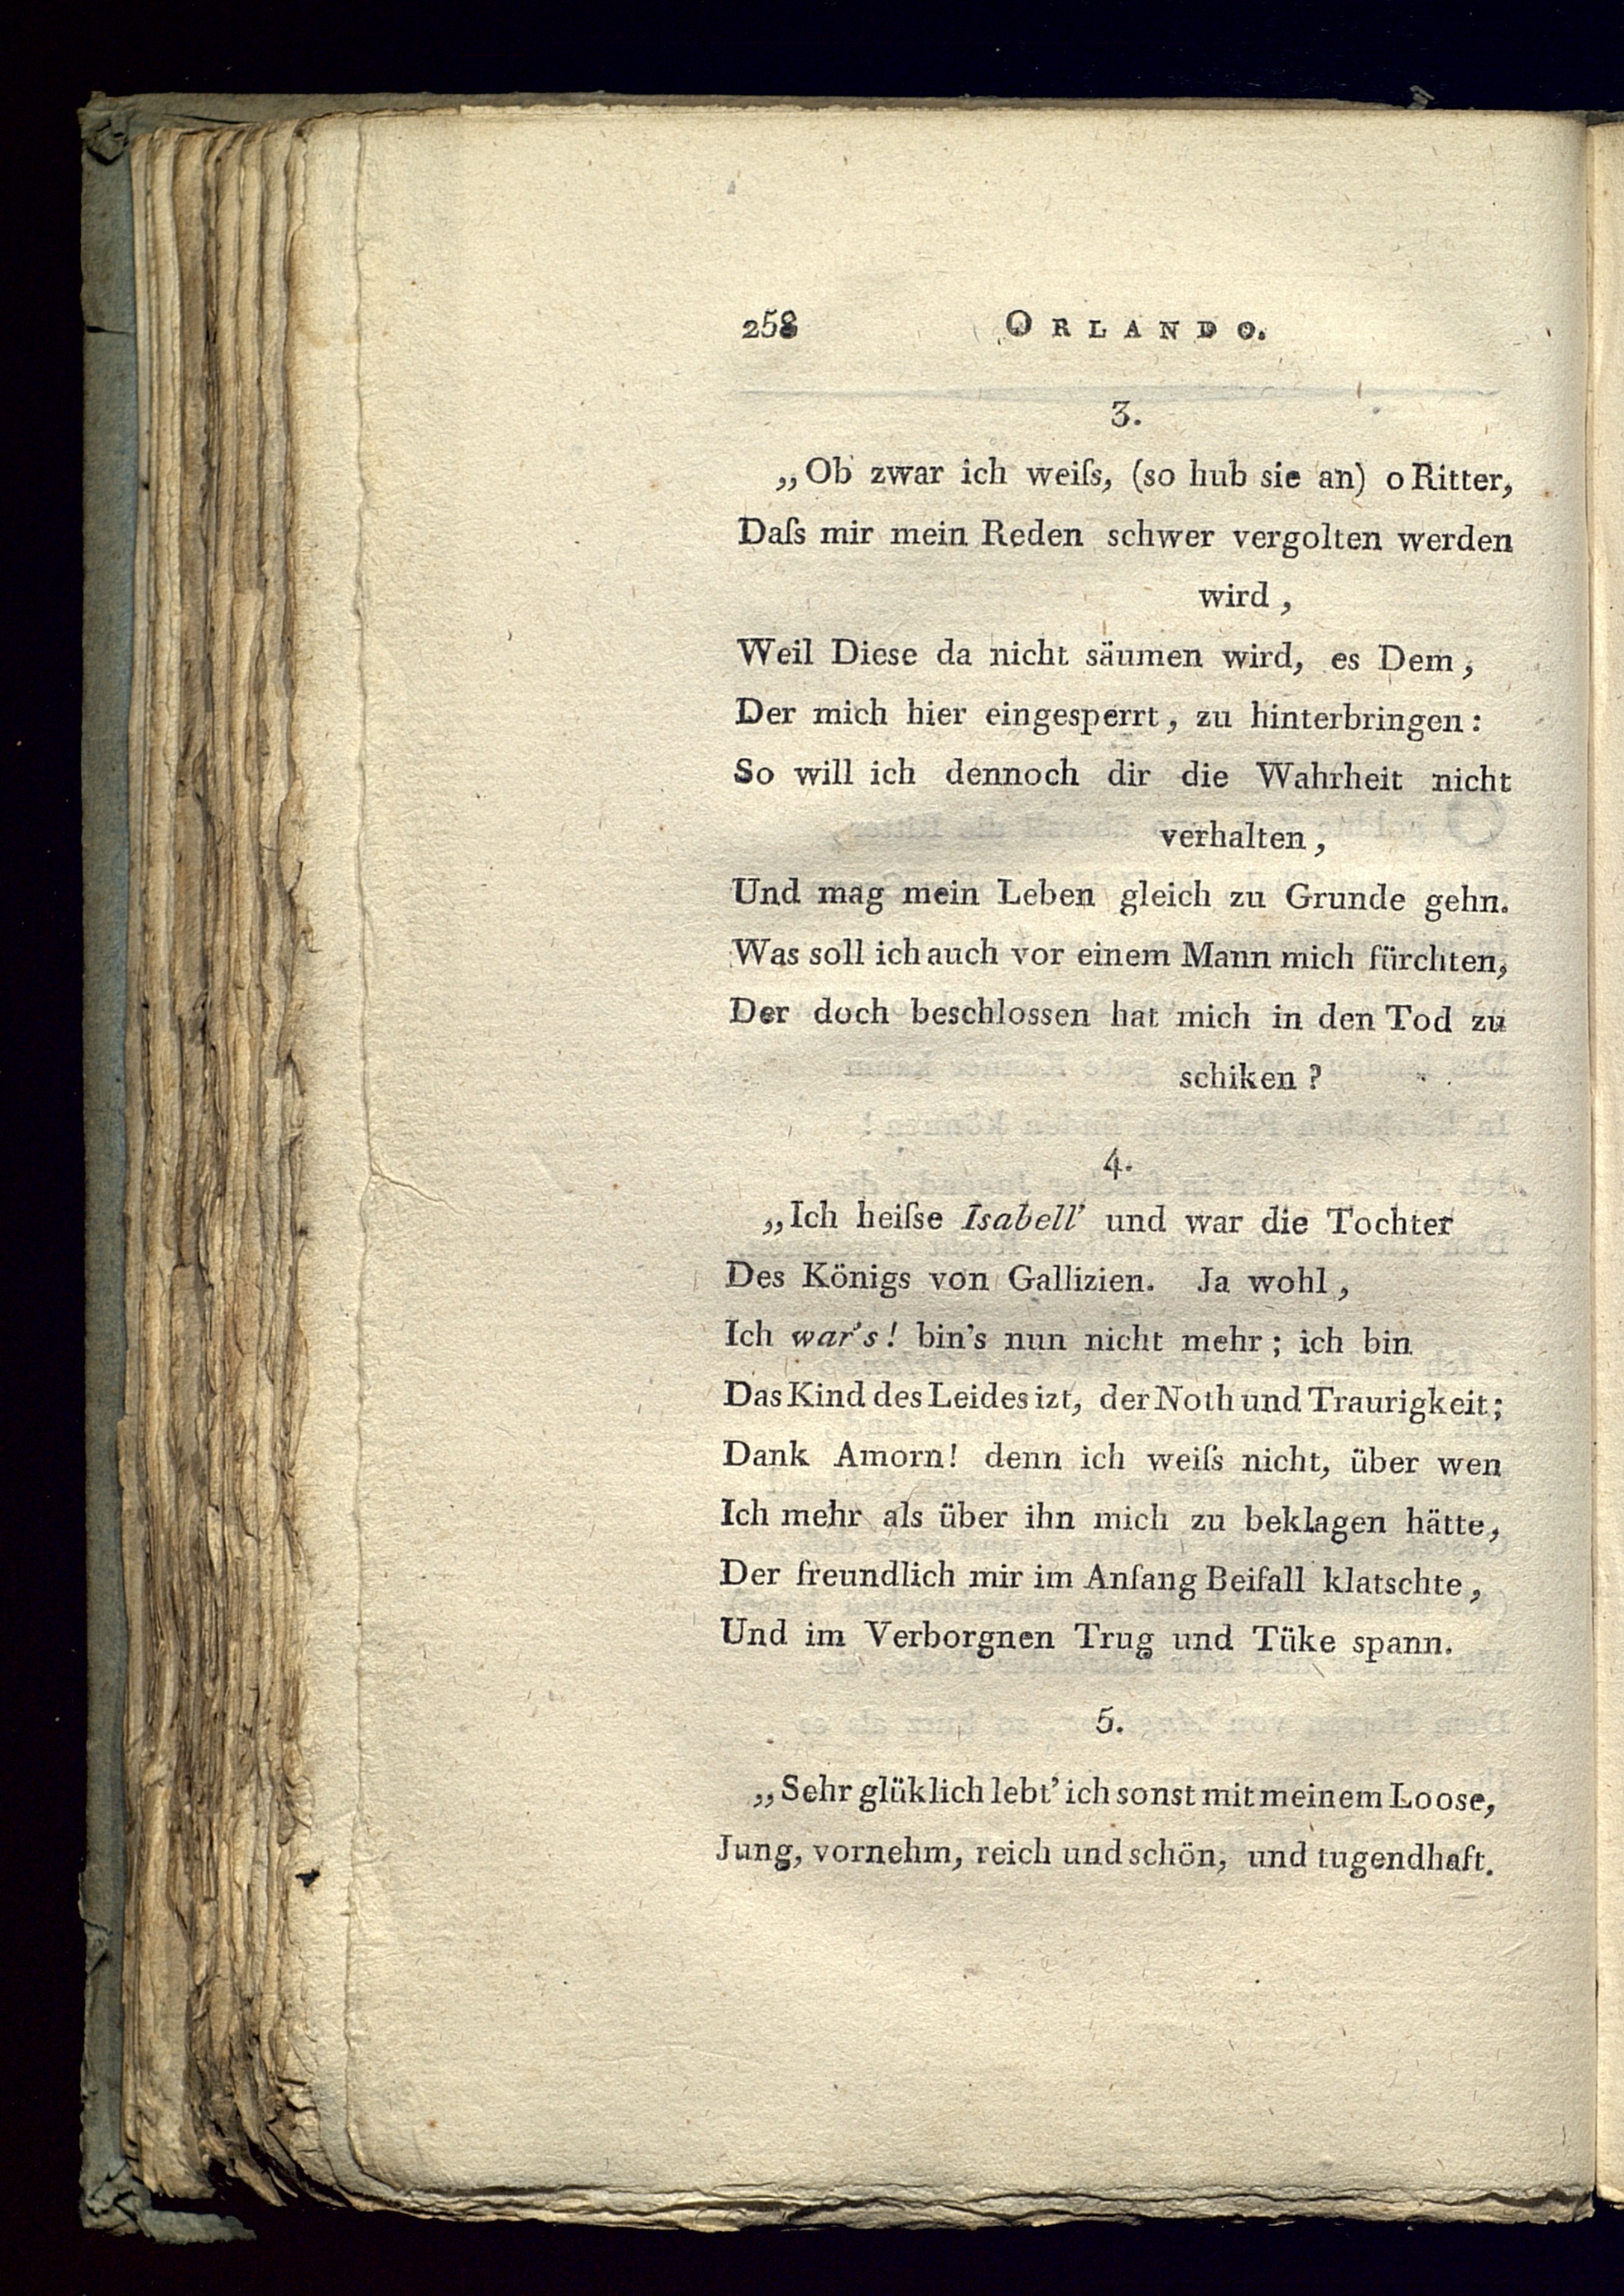 258 ORLANDO.
3.
„Ob zwar ich weiſs, (so hub sie an) o Ritter,
Daſs mir mein Reden schwer vergolten werden
wird,
Weil Diese da nicht säumen wird, es Dem,
Der mich hier eingesperrt, zu hinterbringen:
So will ich dennoch dir die Wahrheit nicht
verhalten,
Und mag mein Leben gleich zu Grunde gehn.
Was soll ich auch vor einem Mann mich fürchten,
Der doch beschlossen hat mich in den Tod zu
schiken?
4.
„Ich heiſse Isabell' und war die Tochter
Des Königs von Gallizien. Ja wohl,
Ich war's! bin's nun nicht mehr; ich bin
Das Kind des Leides izt, der Noth und Traurigkeit;
Dank Amorn! denn ich weiſs nicht, über wen
Ich mehr als über ihn mich zu beklagen hätte,
Der freundlich mir im Anfang Beifall klatschte,
Und im Verborgnen Trug und Tüke spann.
5.
„Sehr glüklich lebt' ich sonst mit meinem Loose,
Jung, vornehm, reich und schön, und tugendhaft.